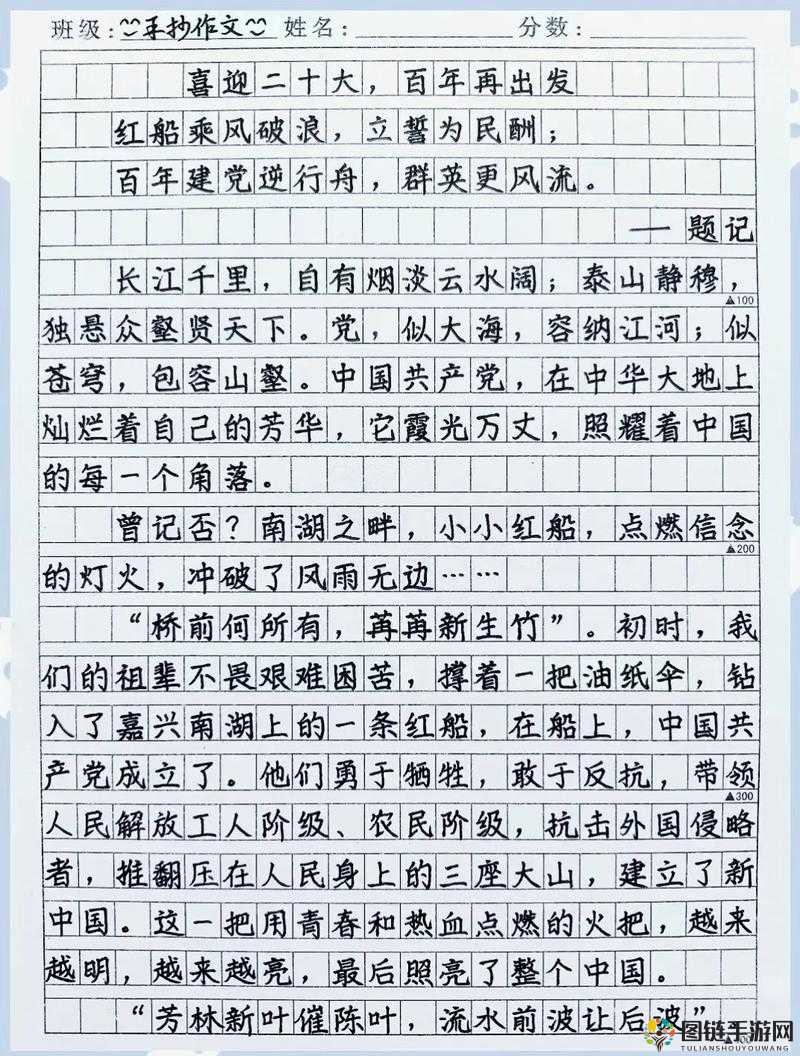 班级:手抄作文 姓名: 分数:
喜迎二十大，百年再出发
红船乘风破浪，立誓为民酬；
百年建党逆行舟，群英更风流。
——题记
长江千里，自有烟淡云水阔；泰山静穆，
▲100
独悬众壑贤天下。党，似大海，容纳江河；似
苍穹，包容山壑。中国共产党，在中华大地上
灿烂着自己的芳华，它霞光万丈，照耀着中国
的每一个角落。
曾记否？南湖之畔，小小红船，点燃信念
▲200
的灯火，冲破了风雨无边……
“桥前何所有，苒苒新生竹”。初时，我
们的祖辈不畏艰难困苦，撑着一把油纸伞，钻
入了嘉兴南湖上的一条红船，在船上，中国共
产党成立了。他们勇于牺牲，敢于反抗，带领
▲300
人民解放工人阶级、农民阶级，抗击外国侵略
者，推翻压在人民身上的三座大山，建立了新
中国。这一把用青春和热血点燃的火把，越来
越明，越来越亮，最后照亮了整个中国。
“芳林新叶催陈叶，流水前波让后波”
图链手游网
TULIANSHOUYOUWANG